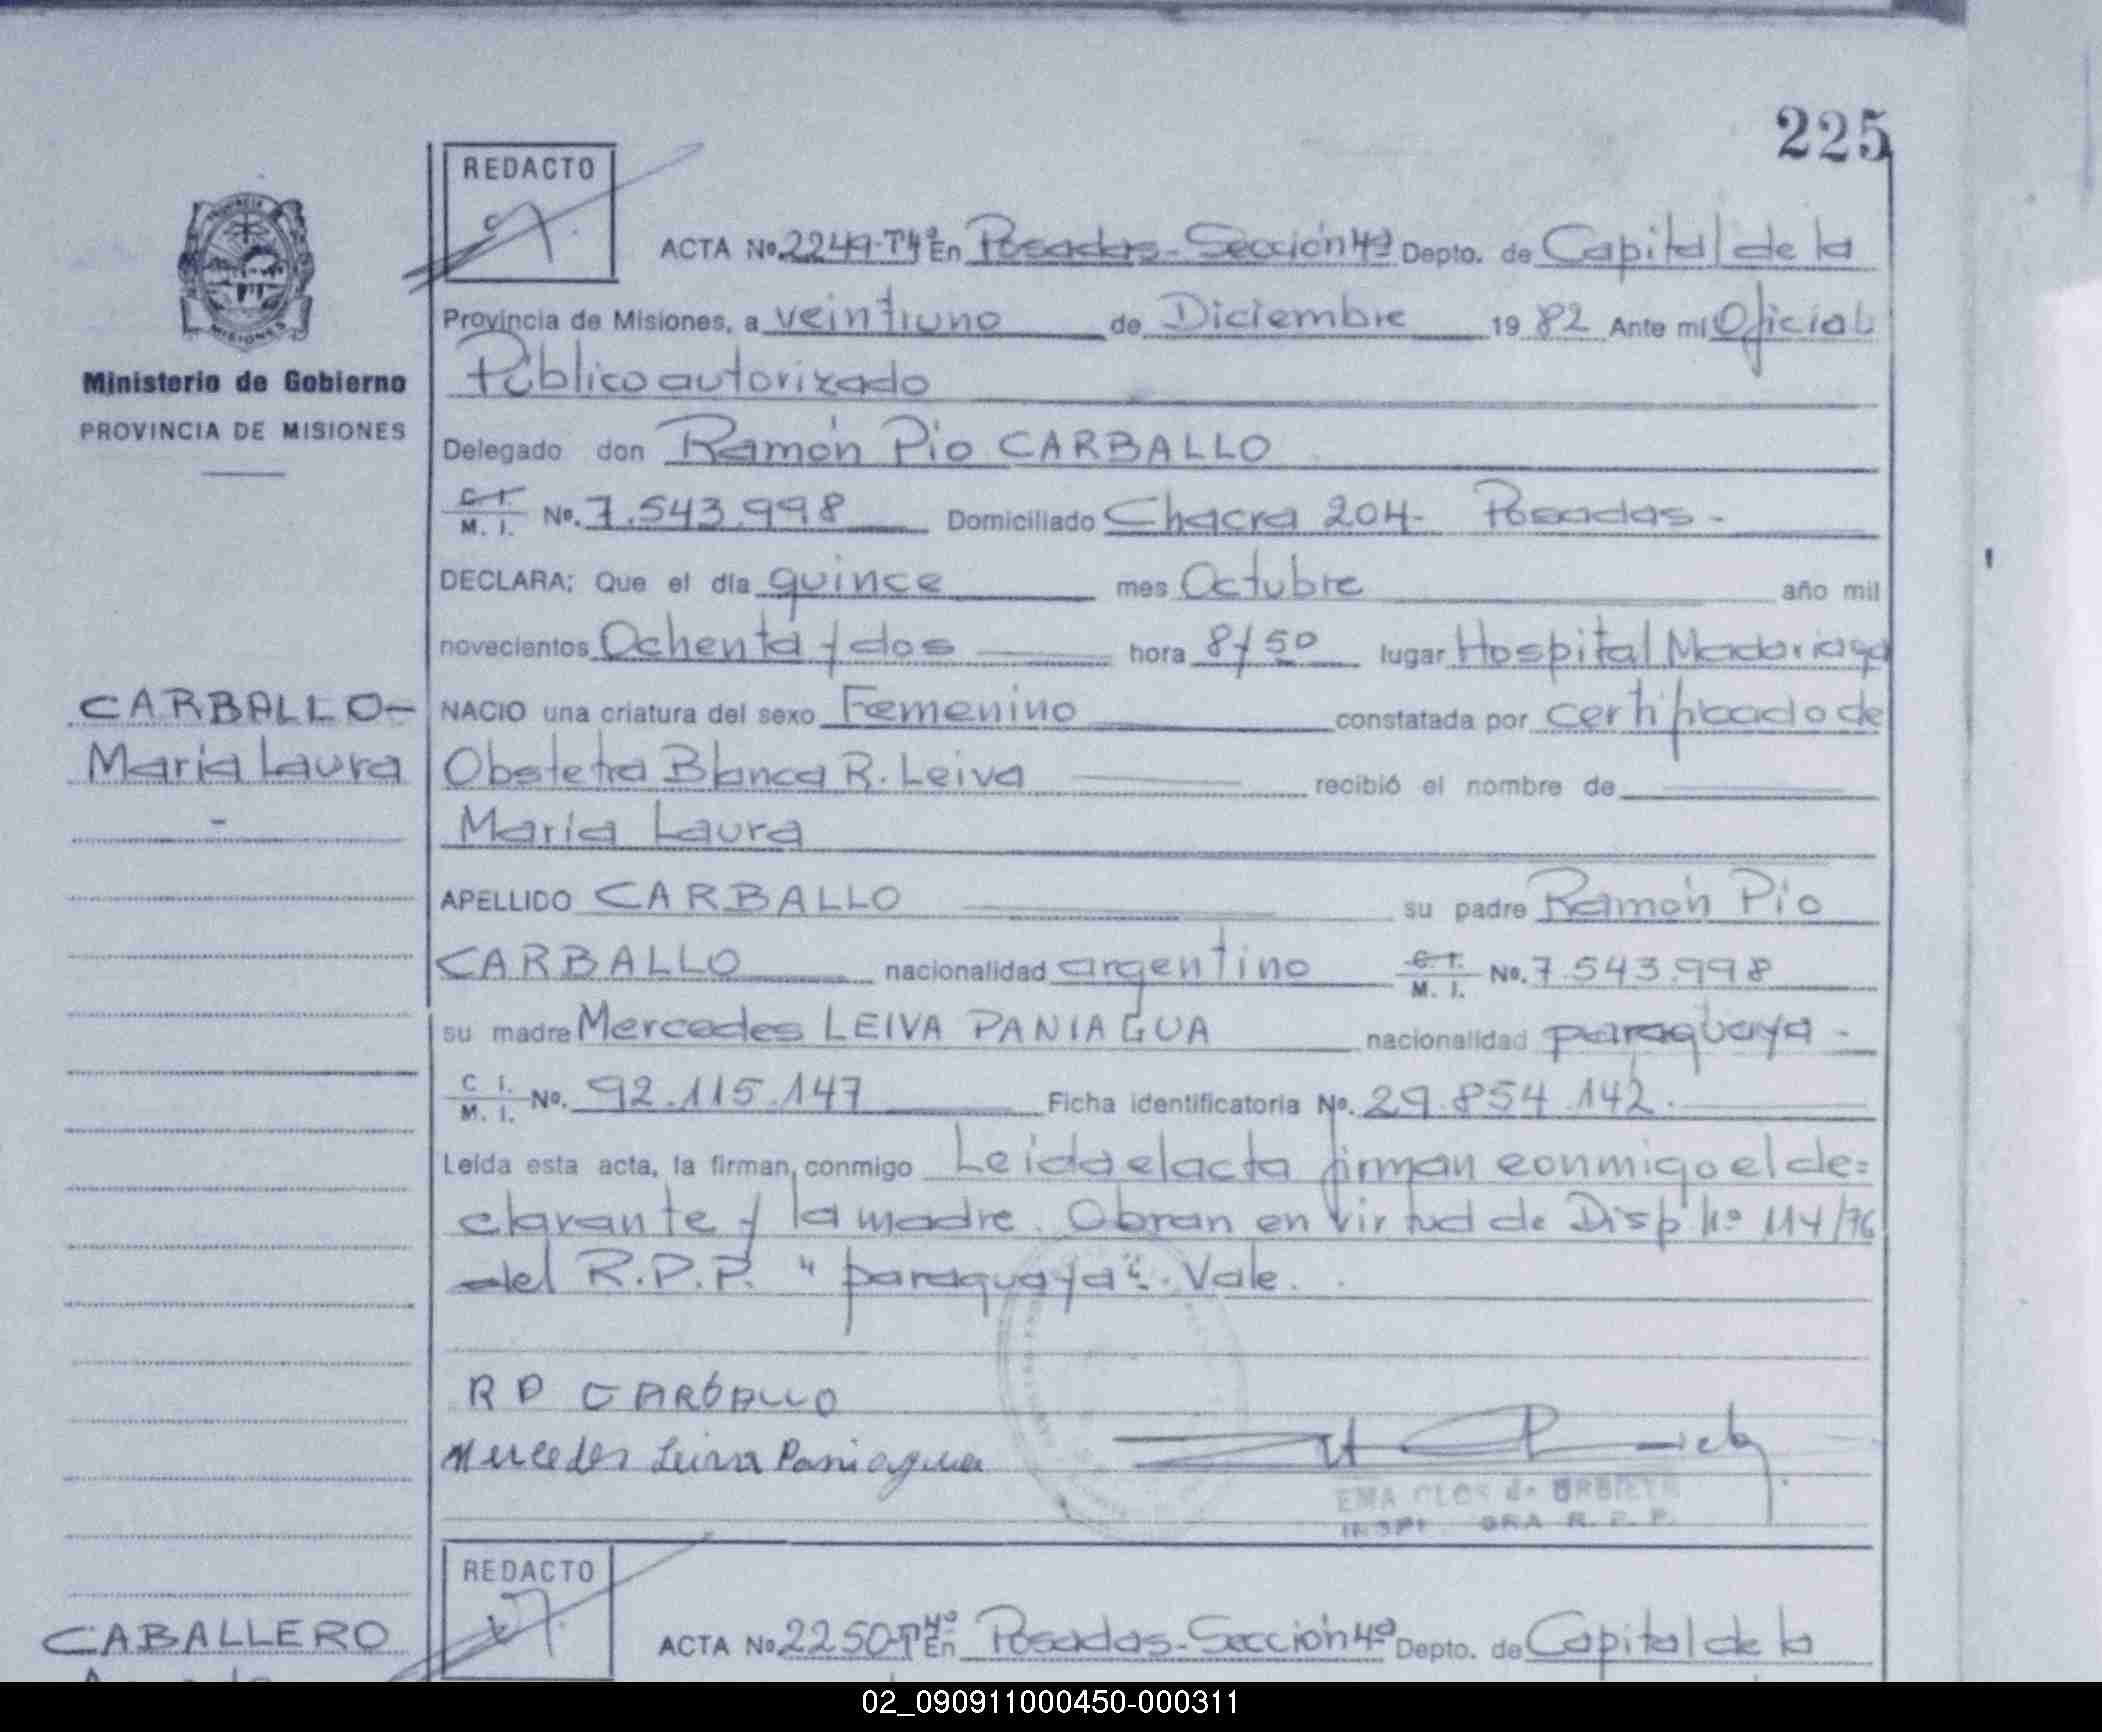 225
REDACTO
PROVINCIA
MISIONES
ACTA No. 2249-T4º En Posadas-Sección 4ª Depto. de Capital de la
Provincia de Misiones, a veintiuno de Diciembre 1982 Ante mi Oficial
Público autorizado
Ministerio de Gobierno
PROVINCIA DE MISIONES
Delegado don Ramón Pio CARBALLO
C. I. M. I. No. 7.543.998 Domiciliado Chacra 204- Posadas-
DECLARA; Que el día quince mes Octubre año mil
novecientos Ochenta y dos hora 8/50 lugar Hospital Madariaga
CARBALLO-
María Laura
-
NACIO una criatura del sexo Femenino constatada por certificado de
Obstetra Blanca R. Leiva recibió el nombre de
María Laura
APELLIDO CARBALLO su padre Ramón Pío
CARBALLO nacionalidad argentino C. I. M. I. No. 7.543.998
su madre Mercedes LEIVA PANIAGUA nacionalidad paraguaya-
C. I. M. I. No. 92.115.147 Ficha identificatoria No. 29.854.142.
Leída esta acta, la firman conmigo Leida el acta firman conmigo el de=
clarante y la madre. Obran en virtud de Disp Nº 114/76
del R.P.P. "paraguaya". Vale.
R P CARBALLO
Mercedes Leiva Paniagua
EMA CLOS de URBIETA
R. P. P.
REDACTO
CABALLERO
ACTA No. 2250-T4º En Posadas-Sección 4ª Depto. de Capital de la
02_090911000450-000311